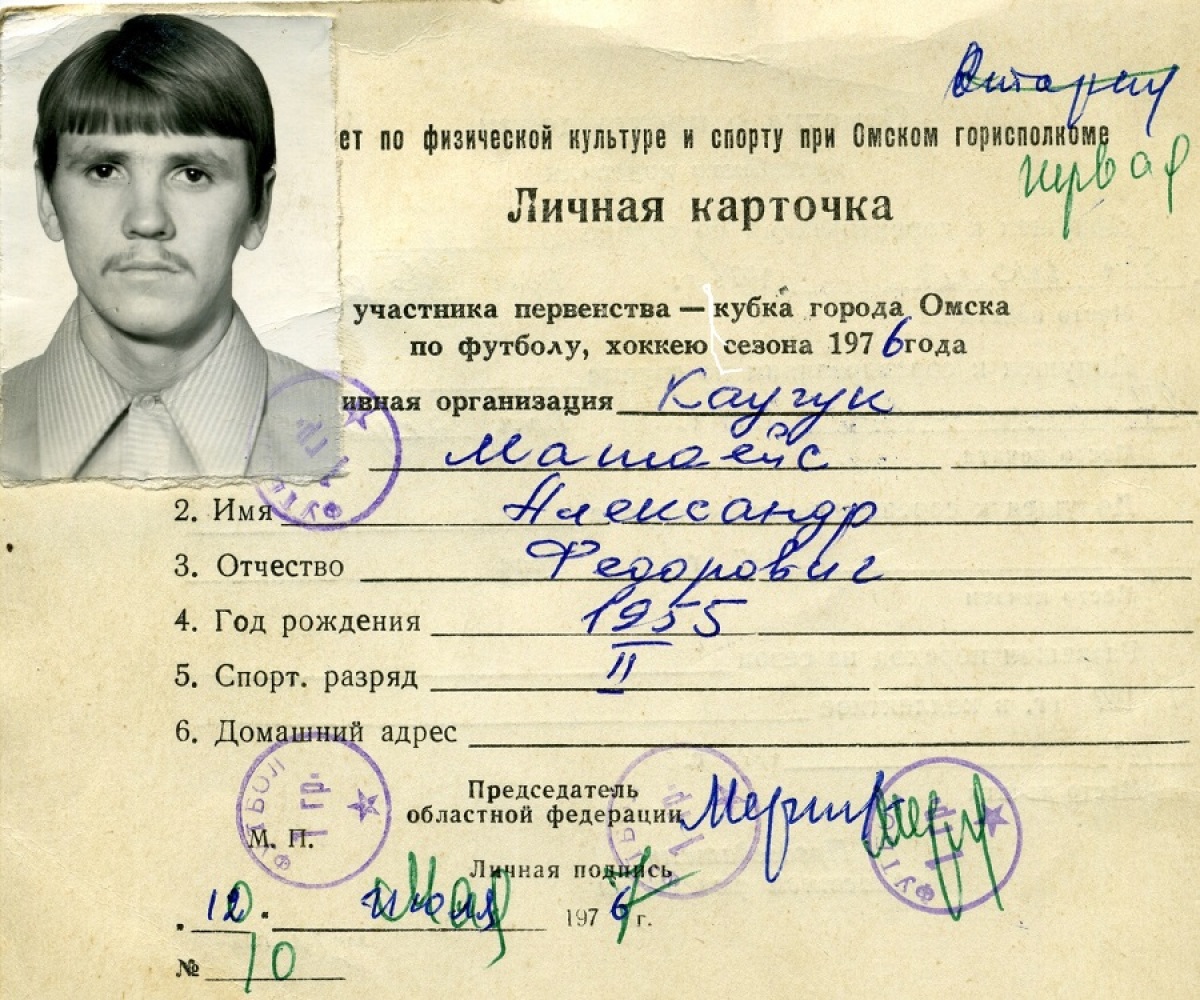 Вторая
ет по физической культуре и спорту при Омском горисполкоме
первая
Личная карточка
участника первенства — кубка города Омска
по футболу, хоккею сезона 1976 года
ивная организация Каучук
Матаейс
2. Имя Александр
3. Отчество Федорович
4. Год рождения 1955
5. Спорт. разряд II
6. Домашний адрес
Председатель
областной федерации
ФУТБОЛ 1 гр.
М. П.
Личная подпись
12 июля 1976 г.
№ 10